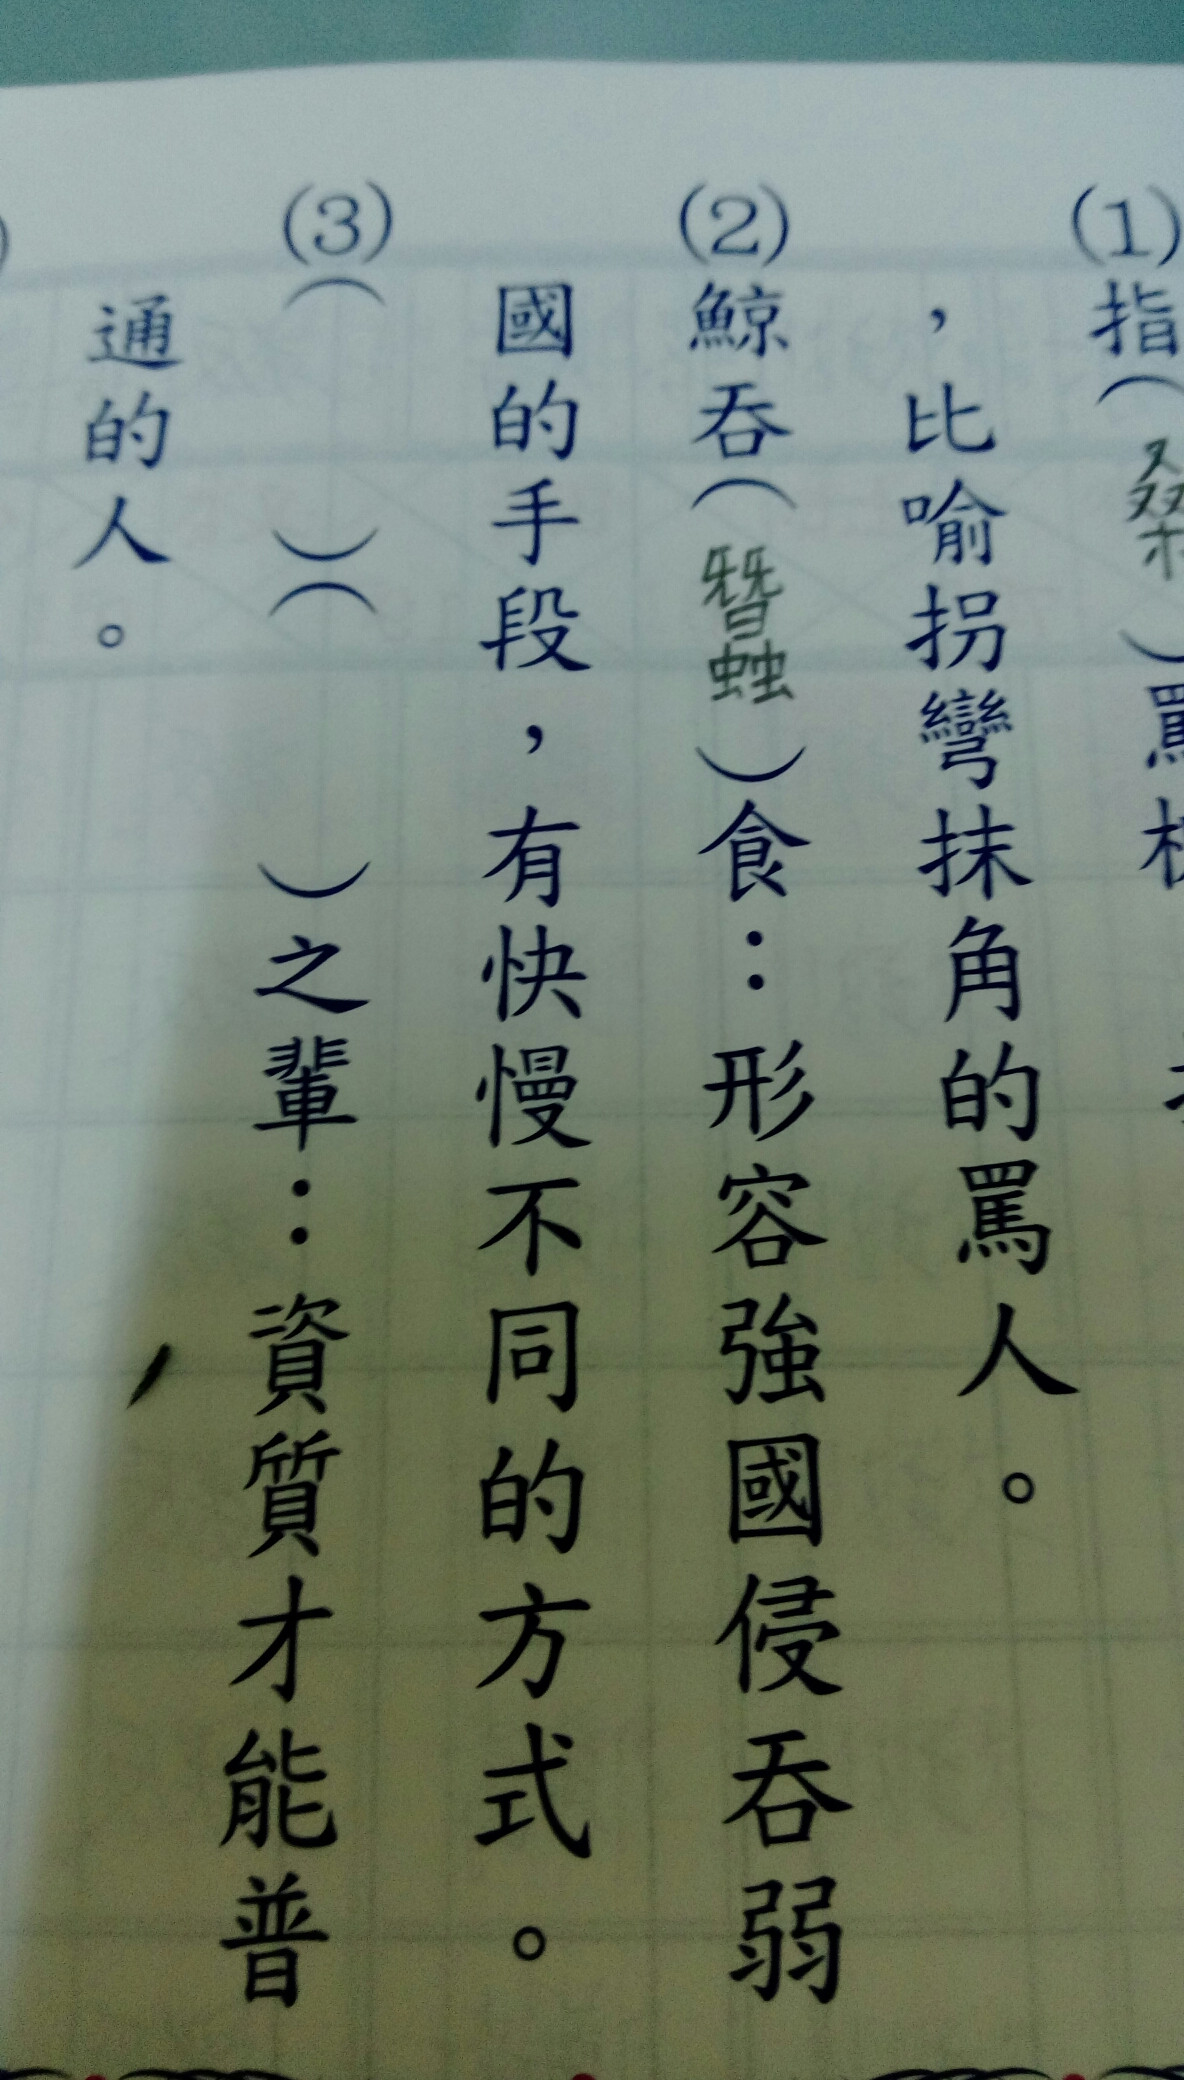 (1)指(桑)罵
，比喻拐彎抹角的罵人。
(2)鯨吞(蠶)食：形容強國侵吞弱
國的手段，有快慢不同的方式。
(3)(　)(　)之輩：資質才能普
通的人。